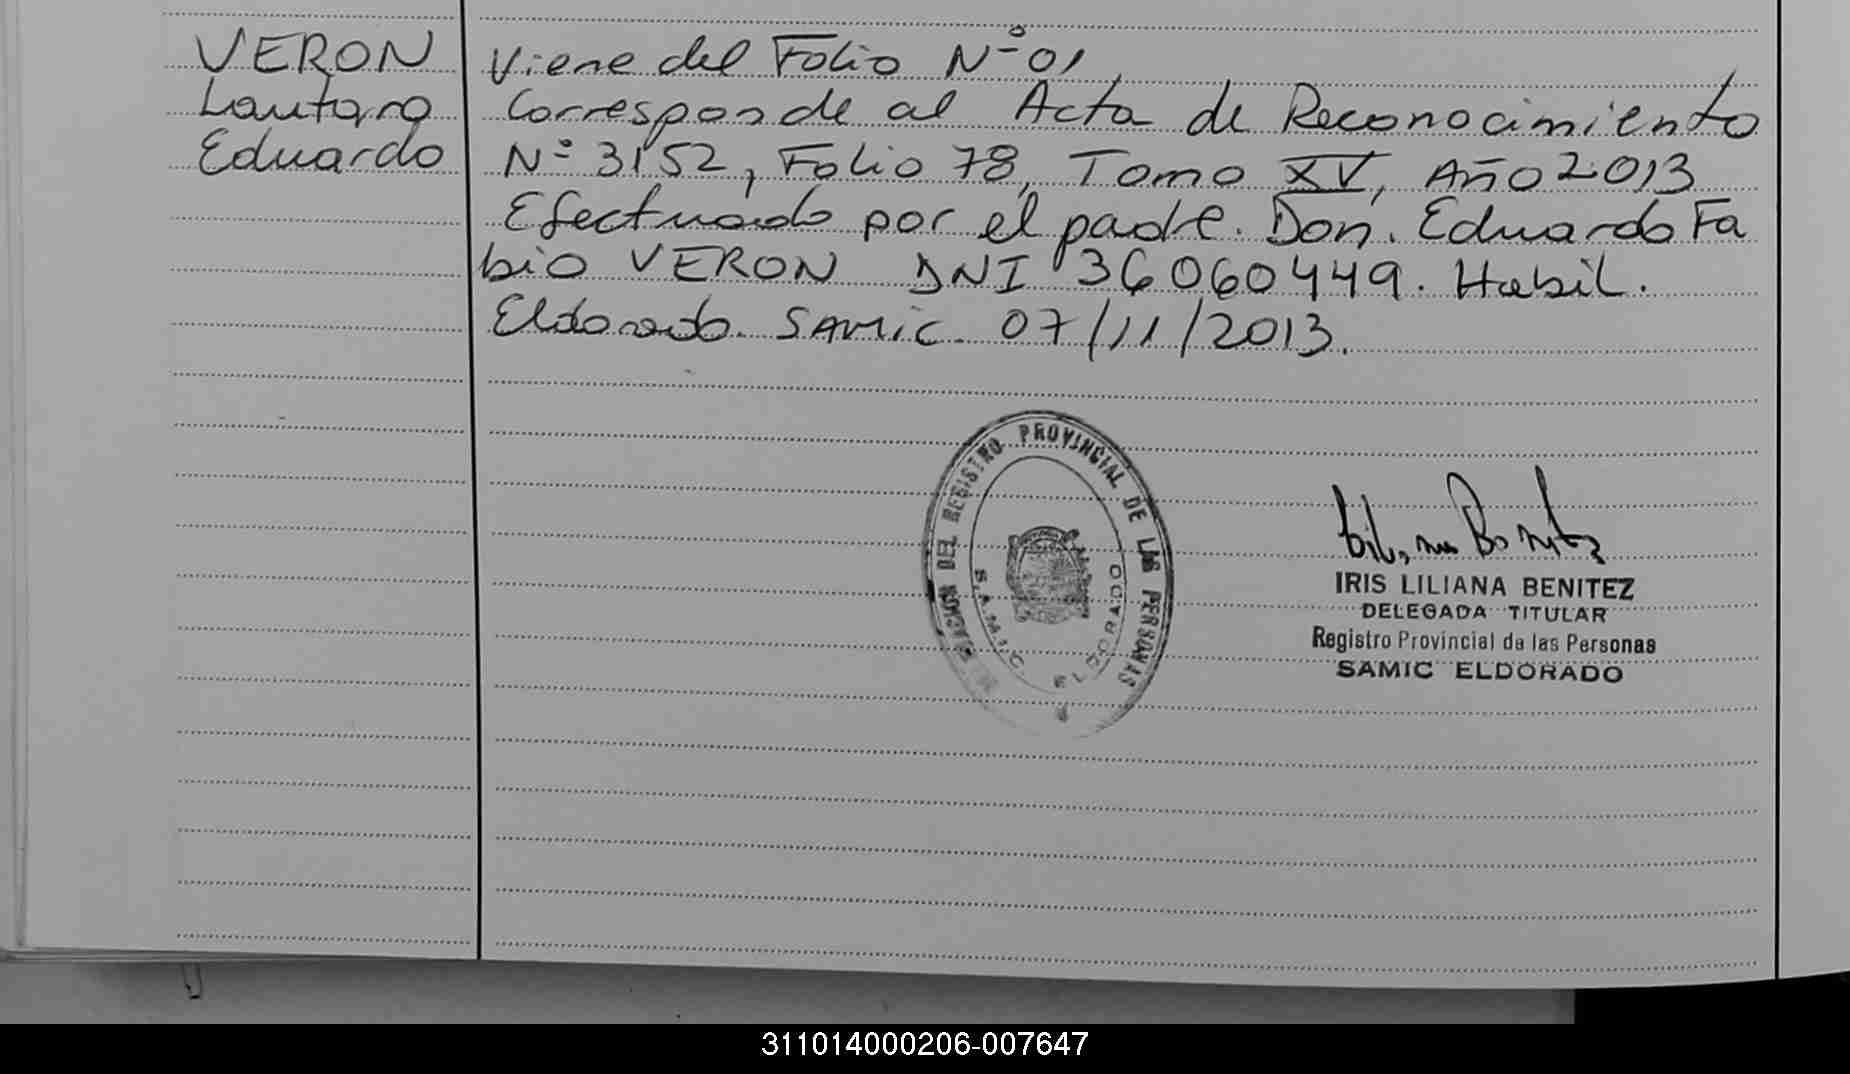 VERON
Lautaro
Eduardo
Viene del Folio Nº 01,
Corresponde al Acta de Reconocimiento
Nº 3152, Folio 78, Tomo XV, Año 2013
Efectuado por el padre. Don. Eduardo Fa
bio VERON DNI 36060449. Habil.
Eldorado. SAMIC. 07/11/2013.
DEL REGISTRO PROVINCIAL DE LAS PERSONAS
S.A.M.I.C. ELDORADO
IRIS LILIANA BENITEZ
DELEGADA TITULAR
Registro Provincial de las Personas
SAMIC ELDORADO
311014000206-007647